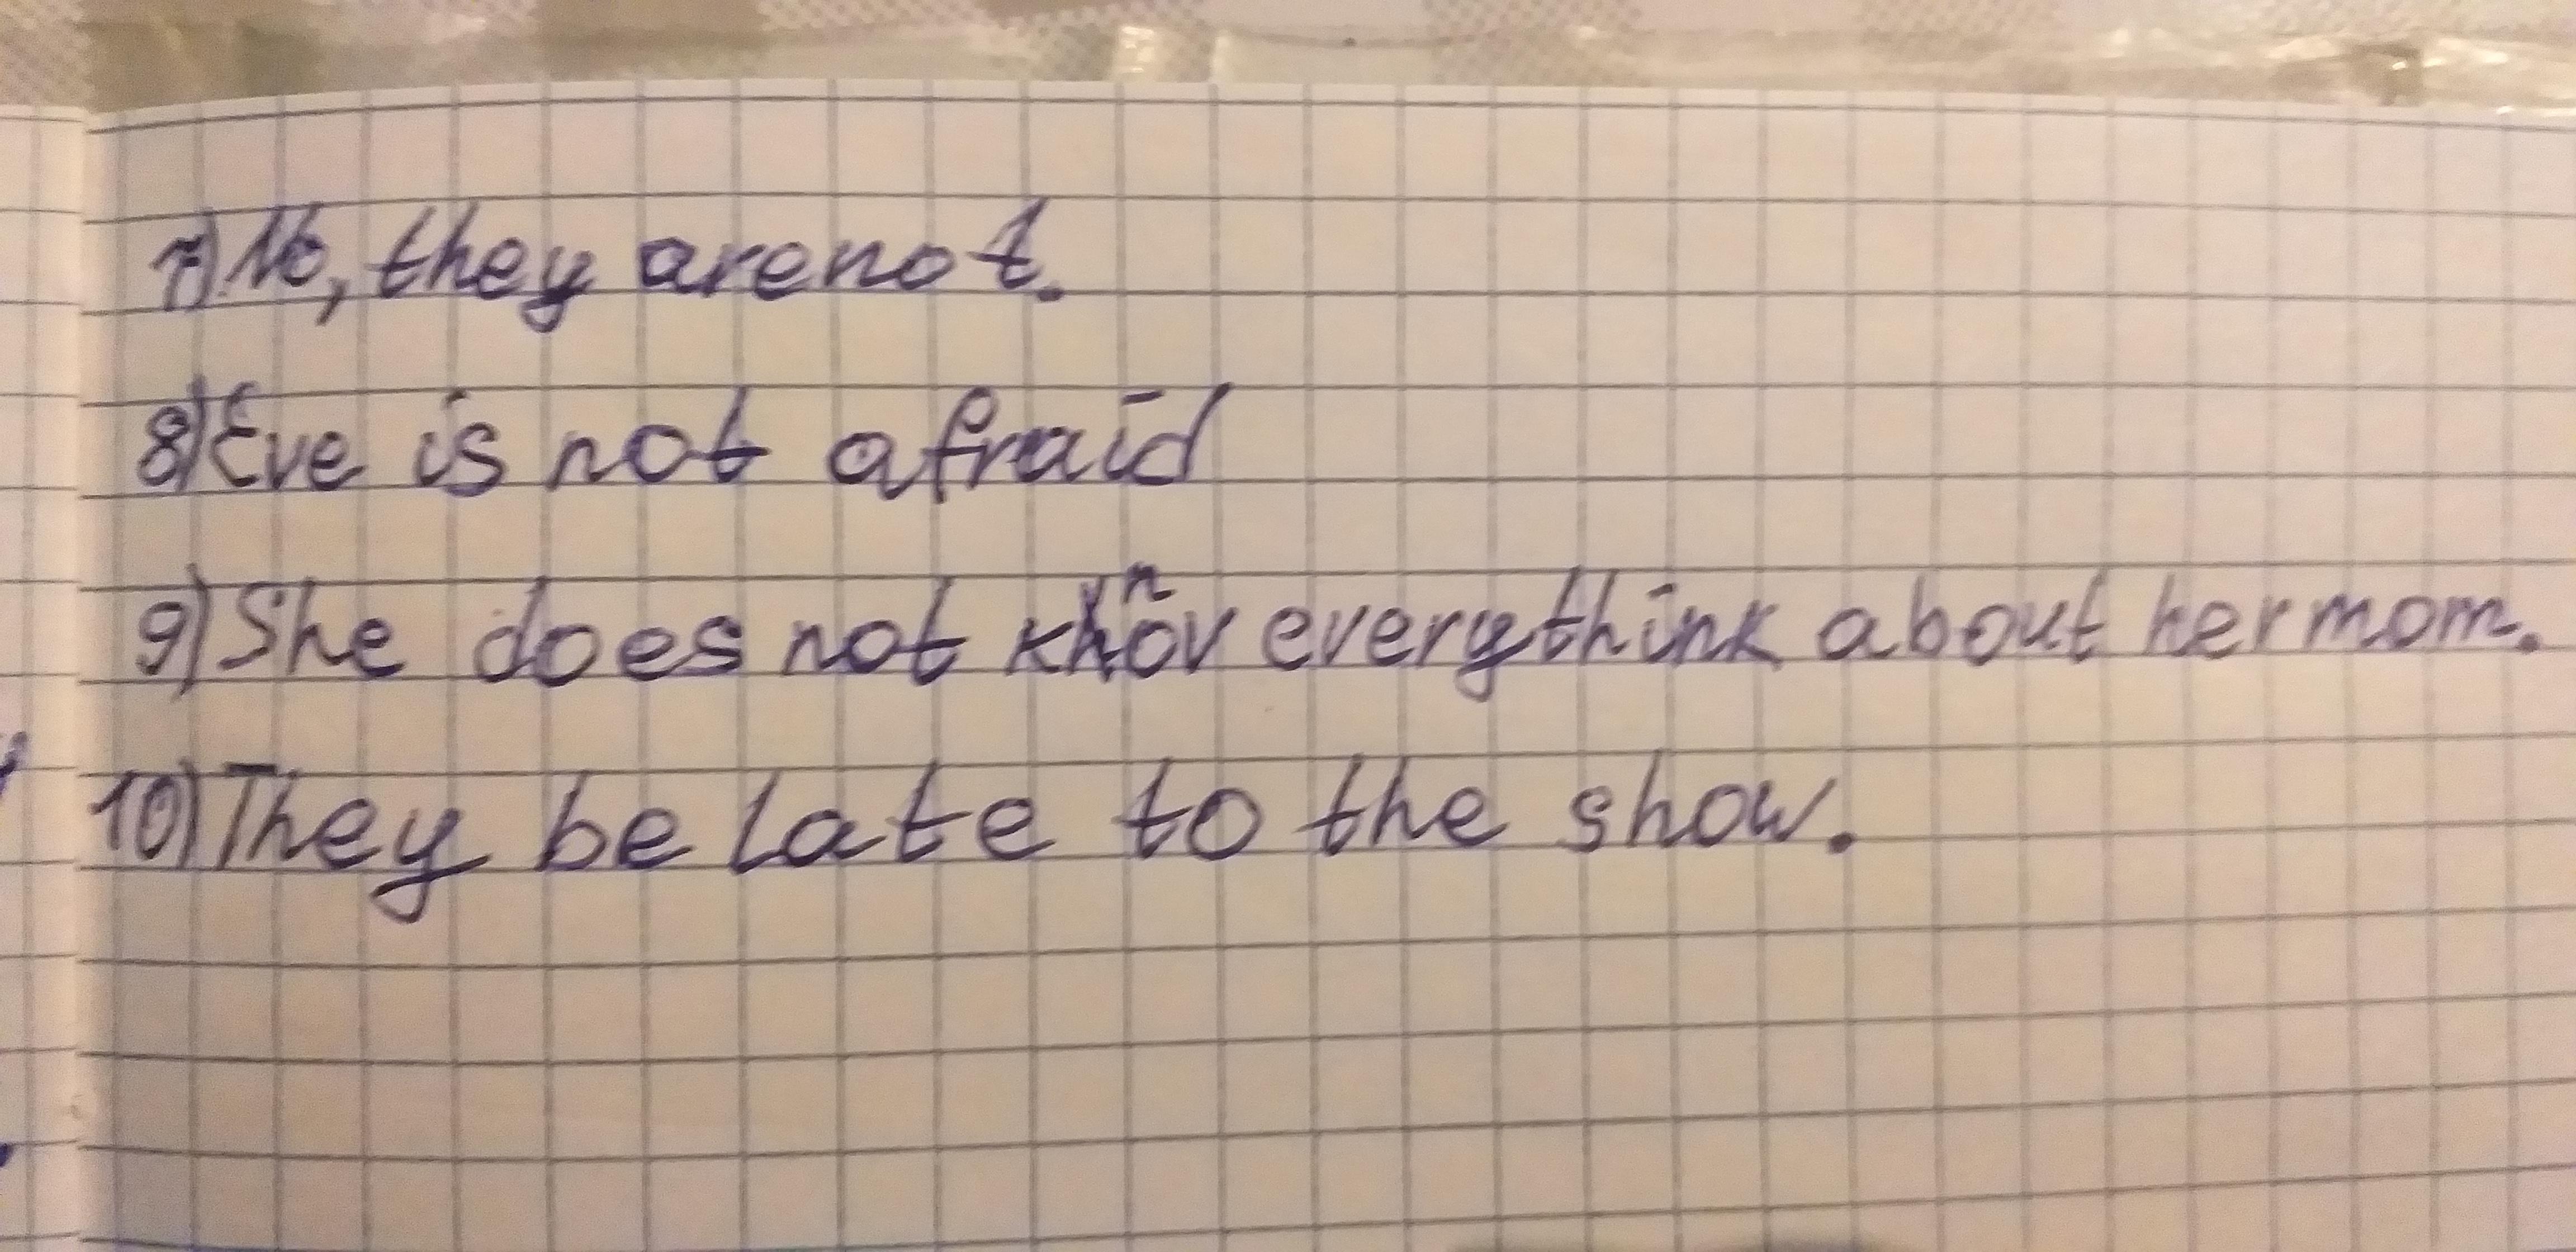 7) No, they are not.
8) Eve is not afraid
9) She does not knov everythink about her mom.
10) They be late to the show.